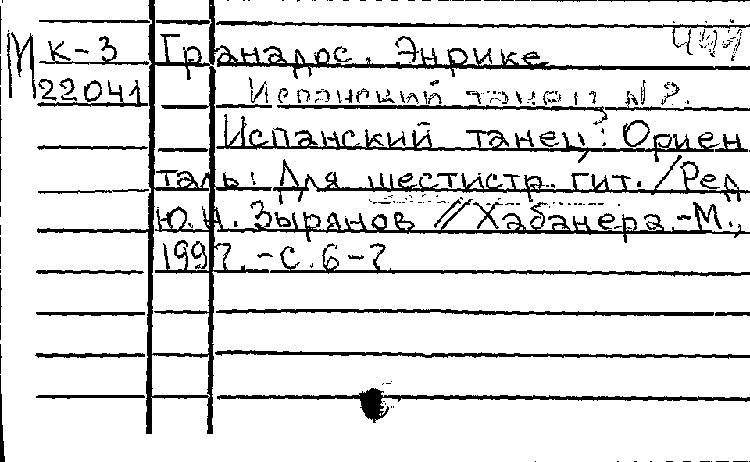 М К-3 Гранадос, Энрике
22041 Испанский танец N 2.
Испанский танец: Ориен
таль: Для шестистр. гит. / Ред
Ю.Н. Зырянов // Хабанера.-М.,
1997.-С.6-7